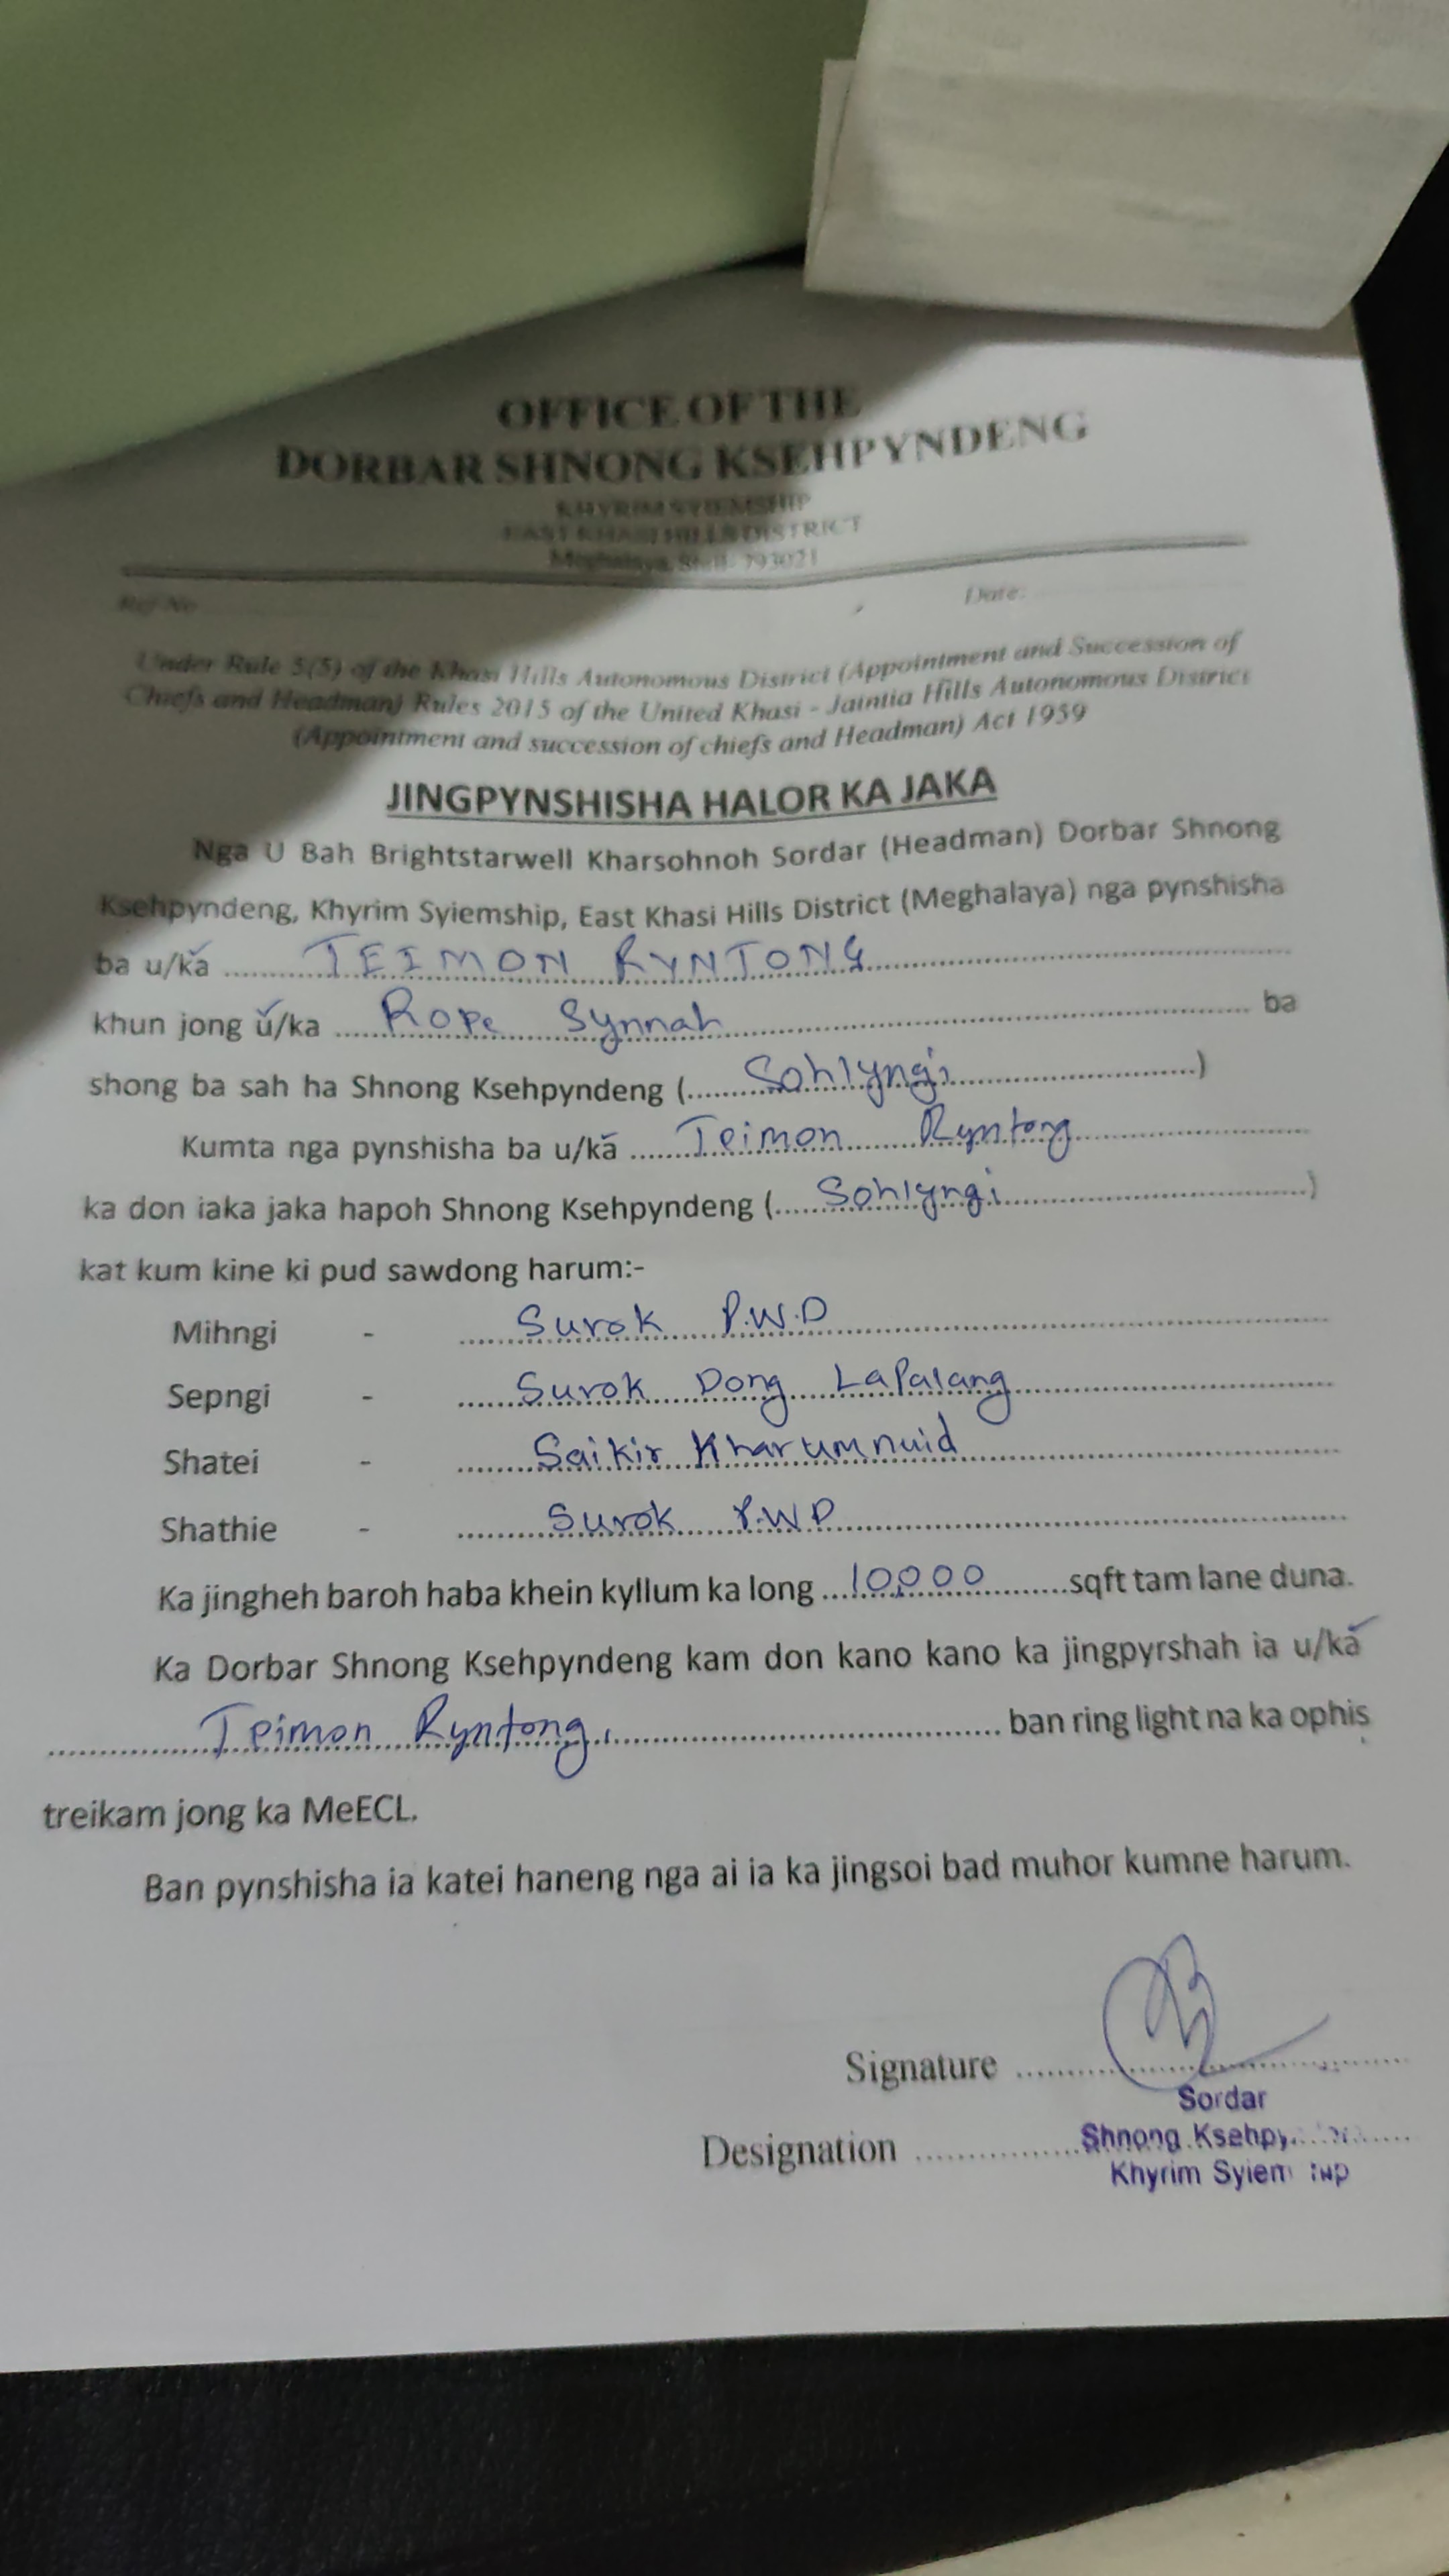 OFFICE OF THE
DORBAR SHNONG KSEHPYNDENG
KHYRIM SYIEMSHIP
EAST KHASI HILLS DISTRICT
Meghalaya, 793021
Ref No
Date:
Under Rule 5(5) of the Khasi Hills Autonomous District (Appointment and Succession of
Chiefs and Headman) Rules 2015 of the United Khasi - Jaintia Hills Autonomous District
(Appointment and succession of chiefs and Headman) Act 1959
JINGPYNSHISHA HALOR KA JAKA
Nga U Bah Brightstarwell Kharsohnoh Sordar (Headman) Dorbar Shnong
Ksehpyndeng, Khyrim Syiemship, East Khasi Hills District (Meghalaya) nga pynshisha
ba u/ka TEIMON RYNTONG
khun jong u/ka Rope Synnah ba
shong ba sah ha Shnong Ksehpyndeng (Sohlyngi)
Kumta nga pynshisha ba u/ka Teimon Ryntong
ka don iaka jaka hapoh Shnong Ksehpyndeng (Sohlyngi)
kat kum kine ki pud sawdong harum:-
Mihngi - Surok P.W.D
Sepngi - Surok Dong Lapalang
Shatei - Saikir Kharumnuid
Shathie - Surok P.W.D
Ka jingheh baroh haba khein kyllum ka long 10,000 sqft tam lane duna.
Ka Dorbar Shnong Ksehpyndeng kam don kano kano ka jingpyrshah ia u/ka
Teimon Ryntong, ban ring light na ka ophis
treikam jong ka MeECL.
Ban pynshisha ia katei haneng nga ai ia ka jingsoi bad muhor kumne harum.
Signature
Sordar
Designation Shnong
Khyrim